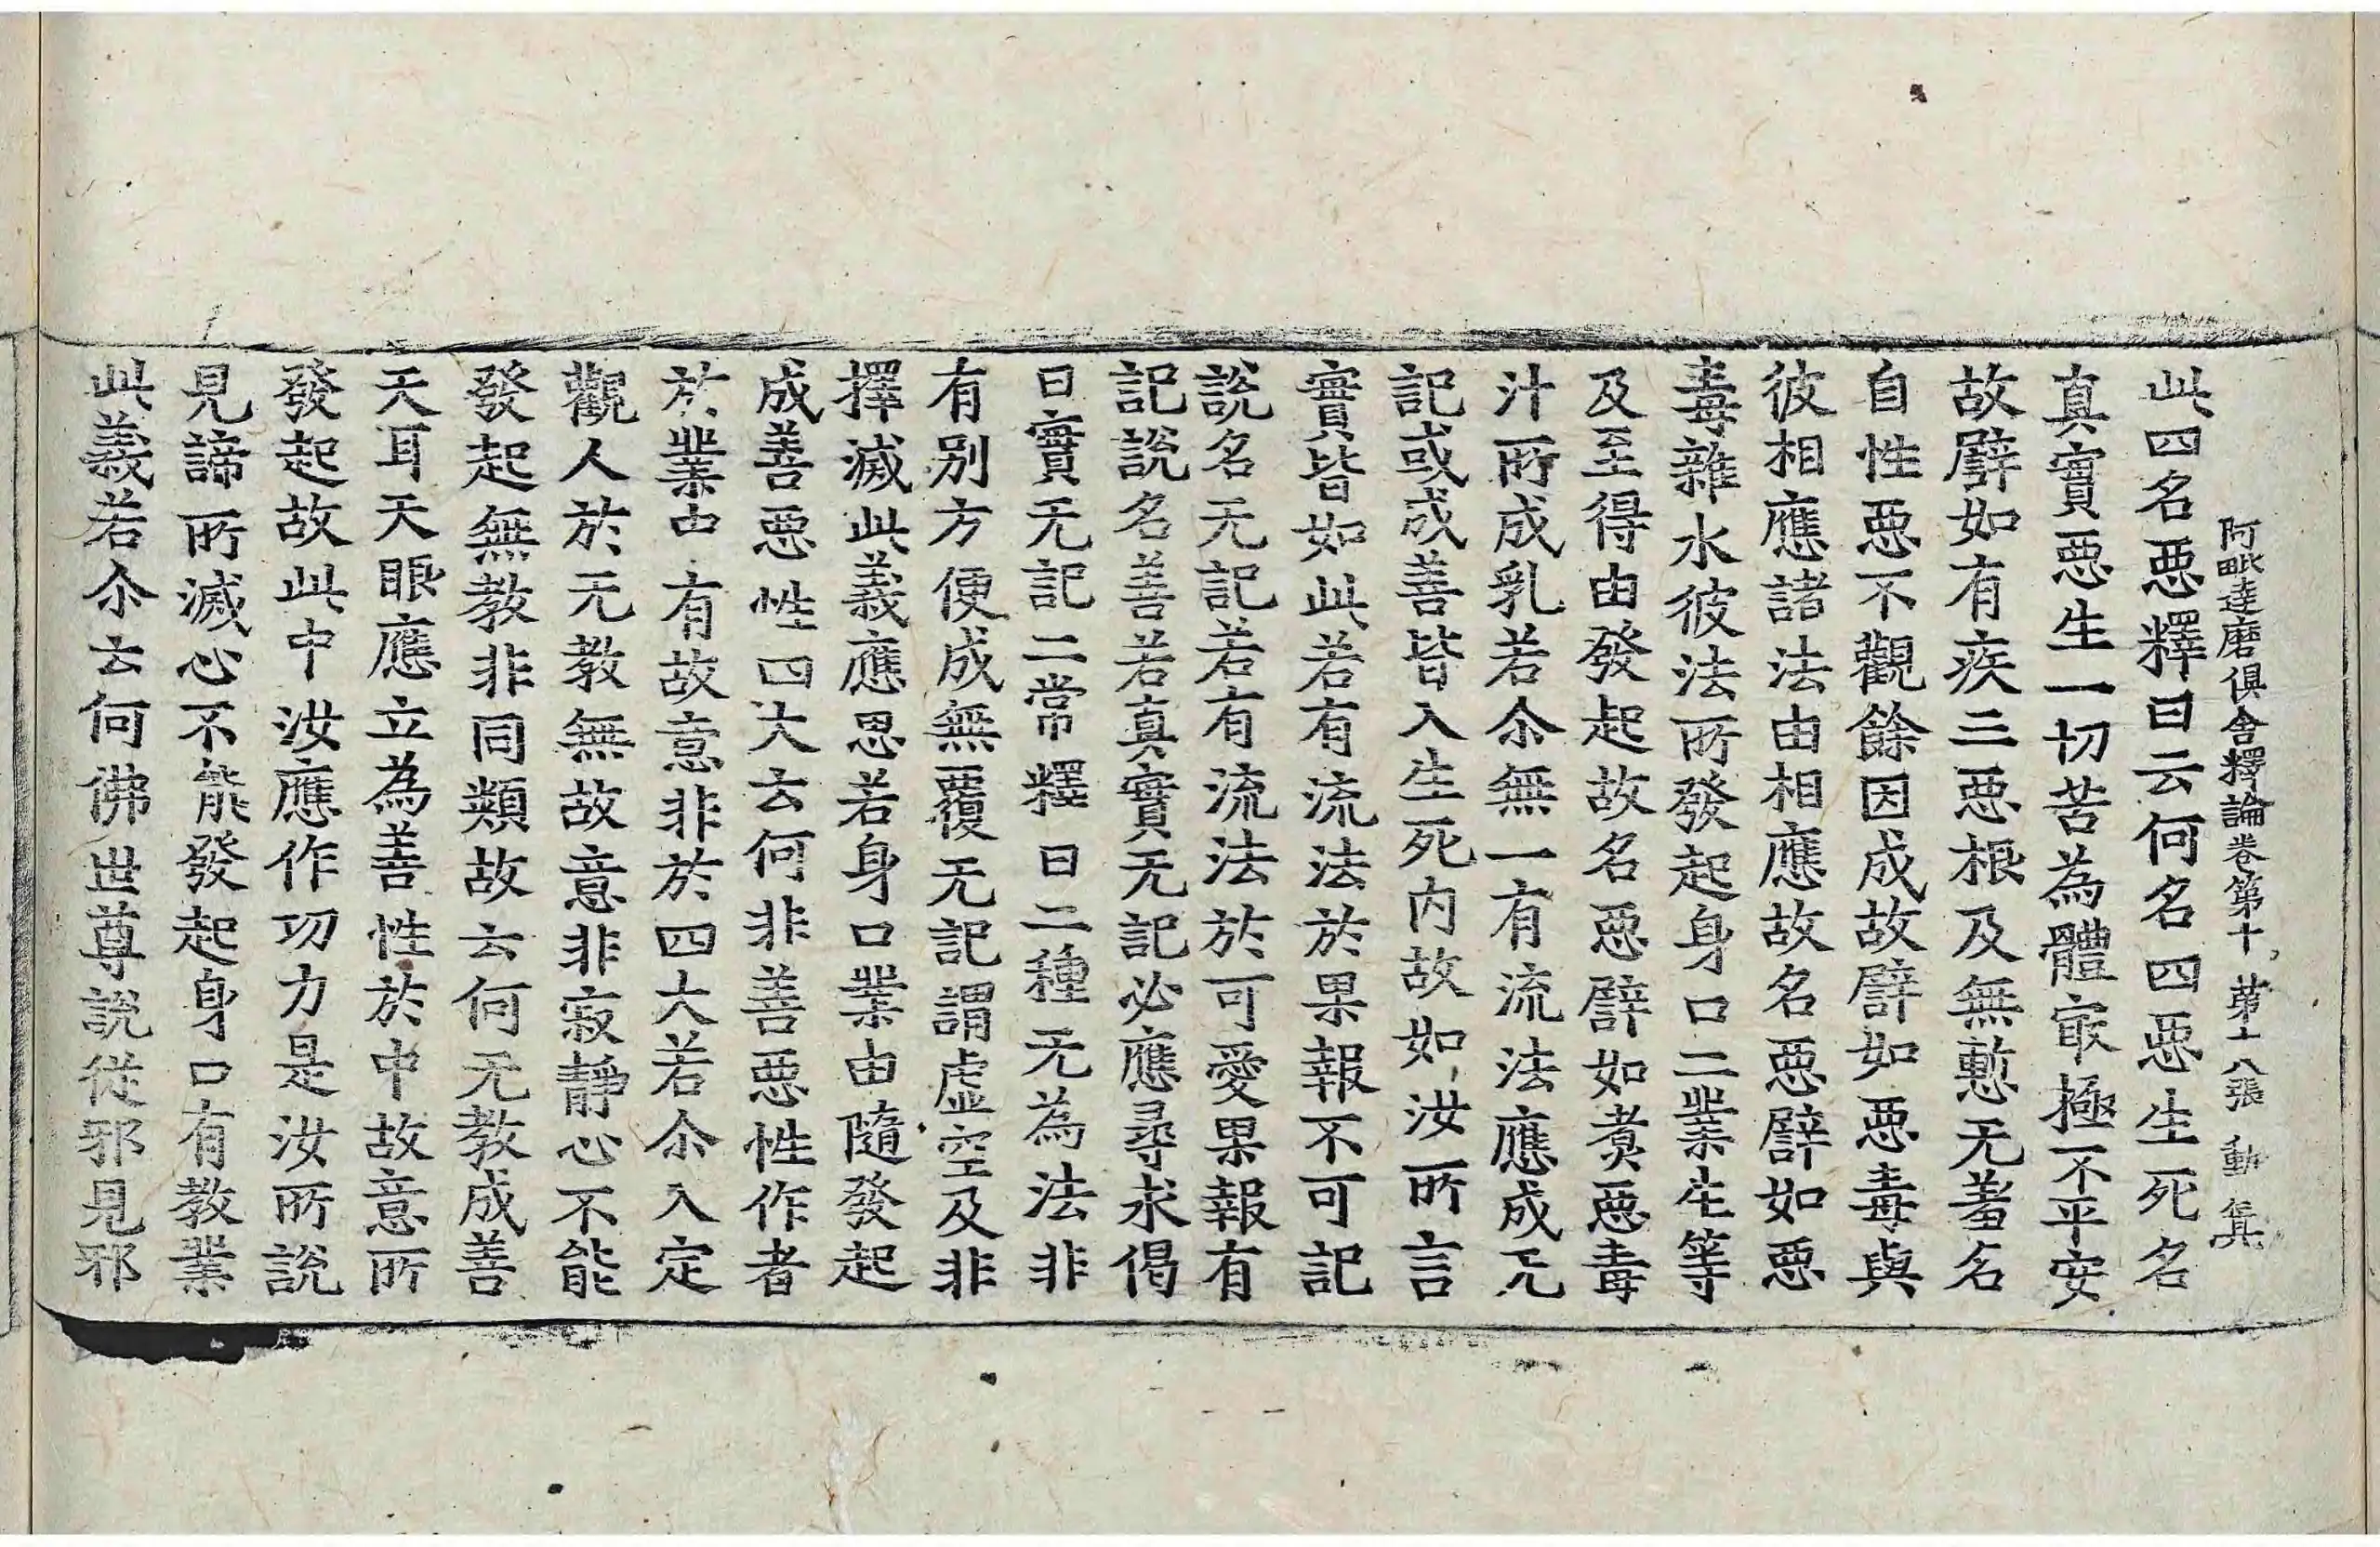 阿毗達磨俱舍釋論卷第十 苐十八張 動 㒷
此四名惡釋曰云何名四惡生死名
真實惡生一切苦為體㝡極不平安
故譬如有疾三惡根及無慙无羞名
自性惡不觀餘因成故譬如惡毒與
彼相應諸法由相應故名惡譬如惡
毒雜水彼法所發起身口二業生等
及至得由發起故名惡譬如煑惡毒
汁所成乳若尒無一有流法應成无
記或成善皆入生死内故如汝所言
實皆如此若有流法於果報不可記
說名无記若有流法於可愛果報有
記說名善若真實无記必應尋求偈
曰實无記二常釋曰二種无為法非
有别方便成無覆无記謂虛空及非
擇滅此義應思若身口業由隨發起
成善惡性四大云何非善惡性作者
於業中有故意非於四大若尒入定
觀人於无教無故意非寂靜心不能
發起無教非同類故云何无教成善
天耳天眼應立為善性於中故意所
發起故此中汝應作功力是汝所說
見諦所滅心不能發起身口有教業
此義若尒云何佛世尊說從邪見邪